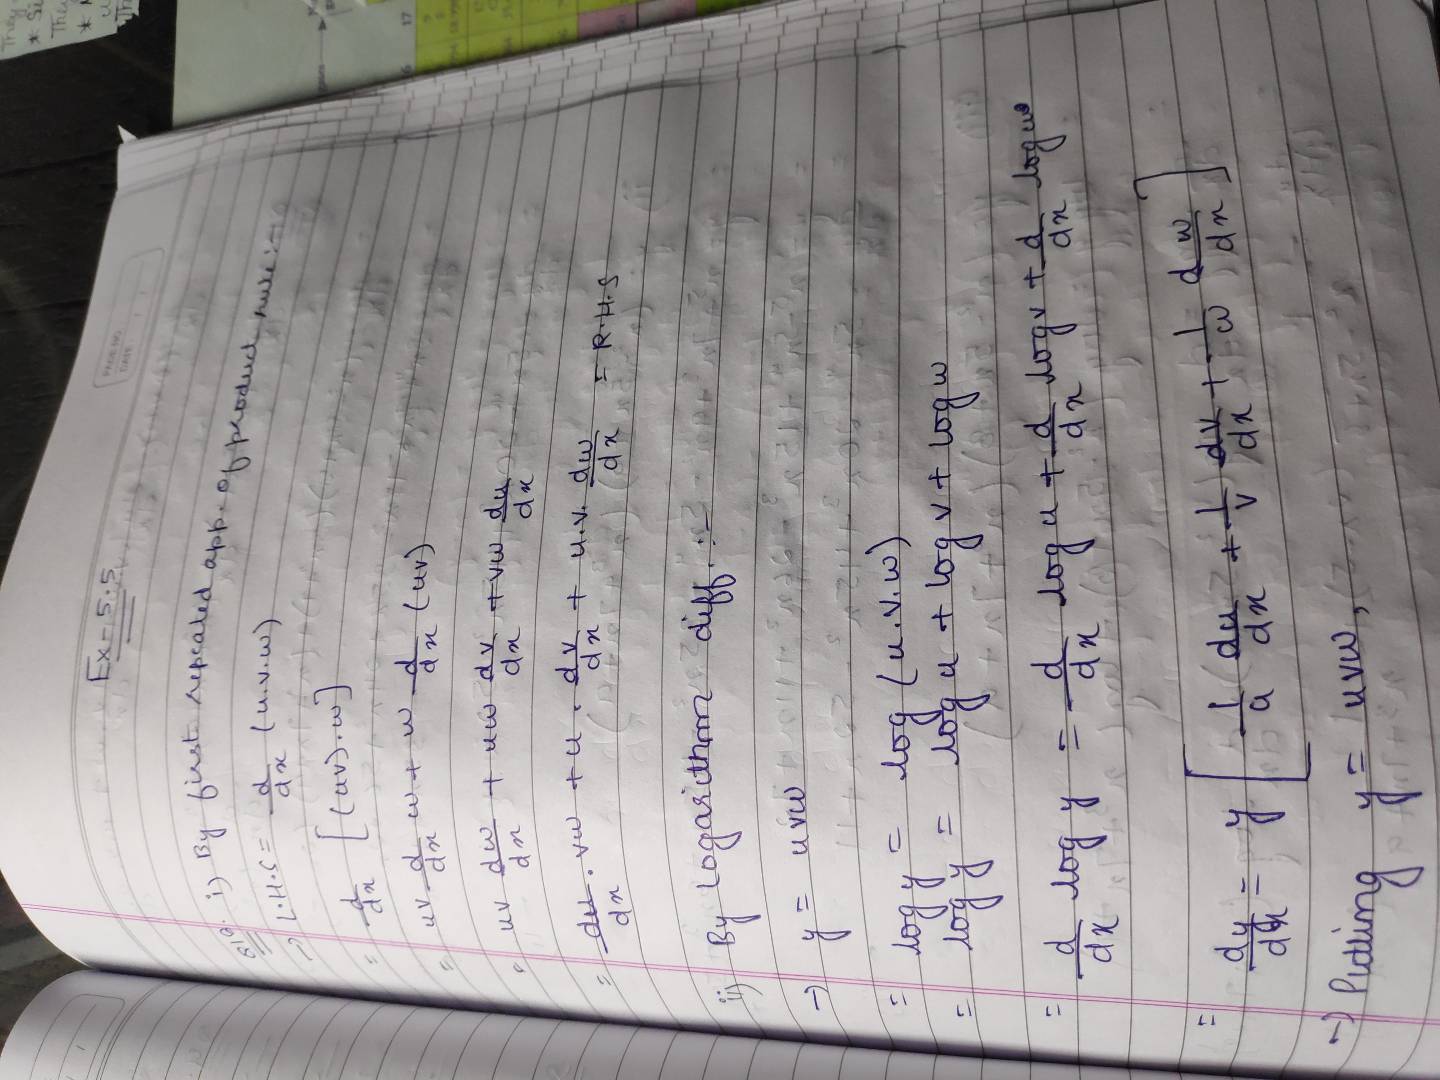 PAGE NO.
DATE
Ex-5.5
i) By first repeated app. of product rule :-
→ L.H.S = d/dx (u.v.w)
= d/dx [(uv).w]
= uv d/dx w + w d/dx (uv)
= uv dw/dx + uw dv/dx + vw du/dx
= du/dx . vw + u . dv/dx + u.v. dw/dx = R.H.S
ii) By Logarithm diff. :-
→ y = uvw
= log y = log (u.v.w)
= log y = log u + log v + log w
= d/dx log y = d/dx log u + d/dx log v + d/dx log w
= dy/dx = y [ 1/u du/dx + 1/v dv/dx + 1/w dw/dx ]
→ Putting y = uvw,